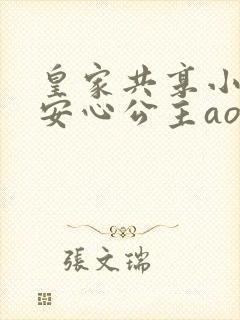 皇家共享小
安心公主ao
張文瑞